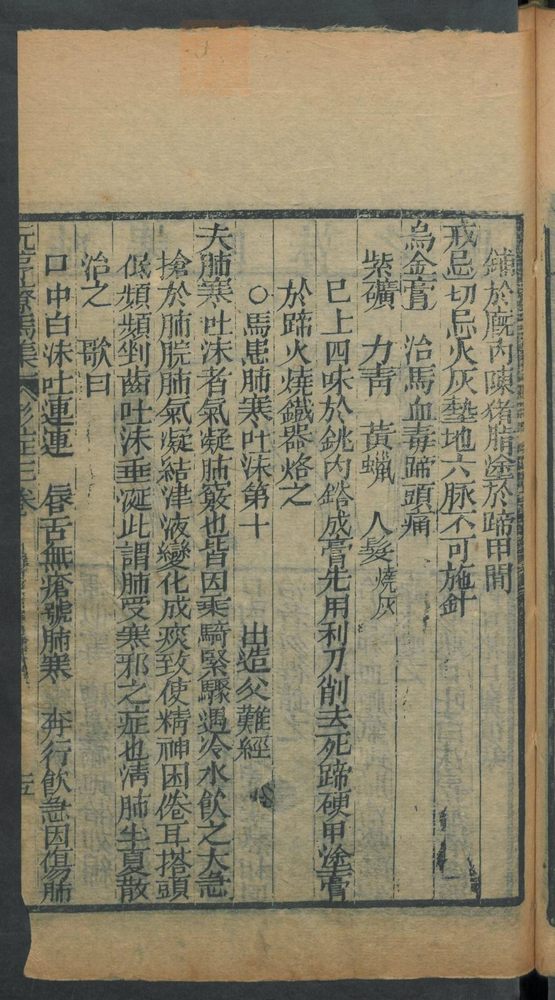 鋪於廐內陳猪脂塗於蹄甲間
戒忌切忌火灰墊地六脉不可施針
烏金膏　治馬血毒蹄頭痛
紫礦　力青　黃蠟　人髮燒灰
巳上四味於銚內鎔成膏先用利刀削去死蹄硬甲塗膏
於蹄火燒鐵器烙之
○馬患肺寒吐沫第十　出造父難經
夫肺寒吐沫者氣凝肺竅也皆因乘騎緊驟遇冷水飮之大急
搶於肺脘肺氣凝結津液變化成痰致使精神困倦耳搭頭
低頻頻剉齒吐沫垂涎此謂肺受寒邪之症也淸肺生夏散
治之　歌曰
口中白沫吐連連　唇舌無瘡號肺寒　奔行飮急因傷肺
元亨療馬集　卷　五